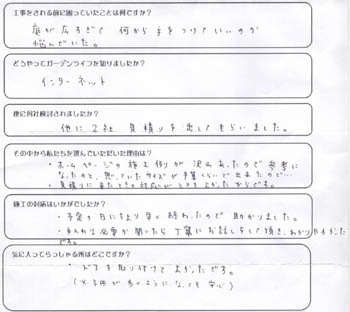 工事をされる前に困っていたことは何ですか?
庭が広すぎて 何から手をつけていいのか
悩んでいた。
どうやってガーデンライフを知りましたか?
インターネット
他に何社検討されましたか?
他に2社 見積りを出してもらいました。
その中から私たちを選んでいただいた理由は?
・ホームページの施工例が沢山あったので参考に
なったのと、思っていたサイズが予算くらいで出来たので…
・見積りに来たときの対応がとてもよかったからです。
施工の対応はいかがでしたか?
・予定の日にちより早く終わったので助かりました。
・手入れの必要か聞いたら丁寧にお話しをして頂き、わかりやすかった
です。
気に入ってらっしゃる所はどこですか?
・ドアを取り付けて よかったです。